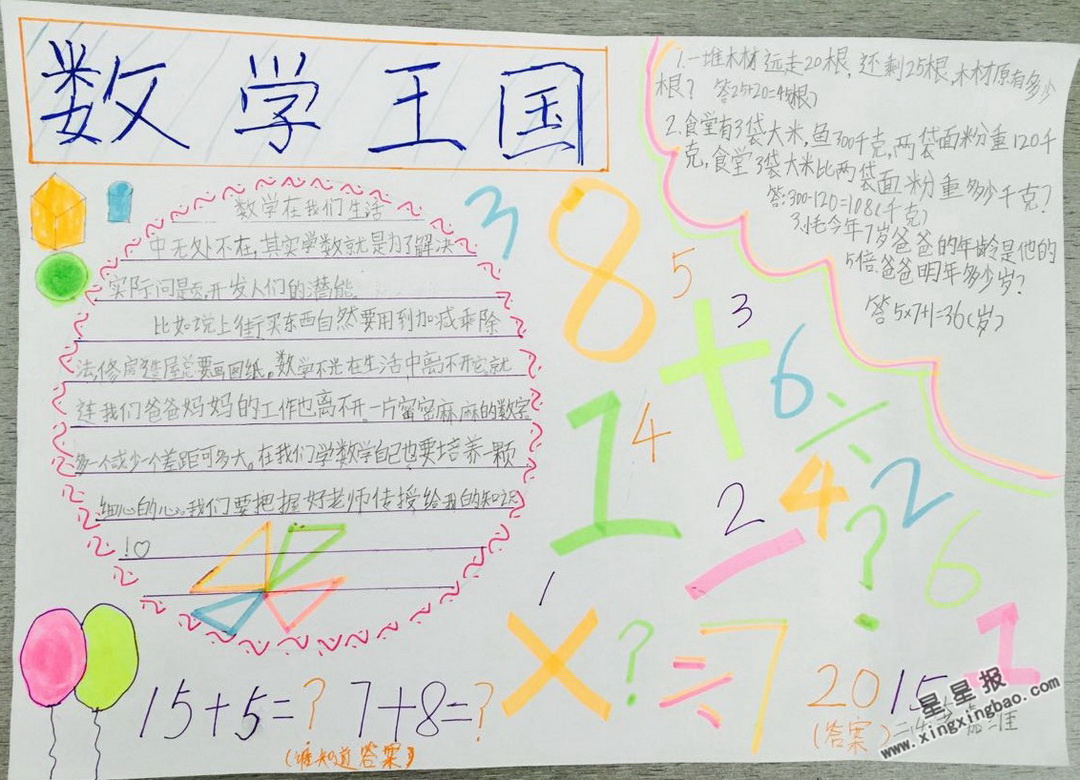 数学王国
数学在我们生活
中无处不在,其实学数就是为了解决
实际问题,开发人们的潜能。
比如说上街买东西自然要用到加减乘除
法,修房造屋总要画图纸。数学不光在生活中离不开它,就
连我们爸爸妈妈的工作也离不开一片密密麻麻的数字
多一个或少一个差距可多大。在我们学数学自己也要培养一颗
细心的心。我们要把握好老师传授给我的知识
!♡
1.一堆木材远走20根,还剩25根,木材原有多少
根? 答25+20=45(根)
2.食堂有3袋大米,鱼300千克,两袋面粉重120千
克,食堂3袋大米比两袋面粉重多少千克?
答:300-120=108(千克)
3.小毛今年7岁爸爸的年龄是他的
5倍,爸爸明年多少岁?
答5×7+1=36(岁)
3
8
5
+
3
6
÷
1
4
2
4
2
-
?
6
1
×
?
=
7
1
15+5=? 7+8=?
(谁知道答案)
20 15
(答案)
星星报
www.xingxingbao.com